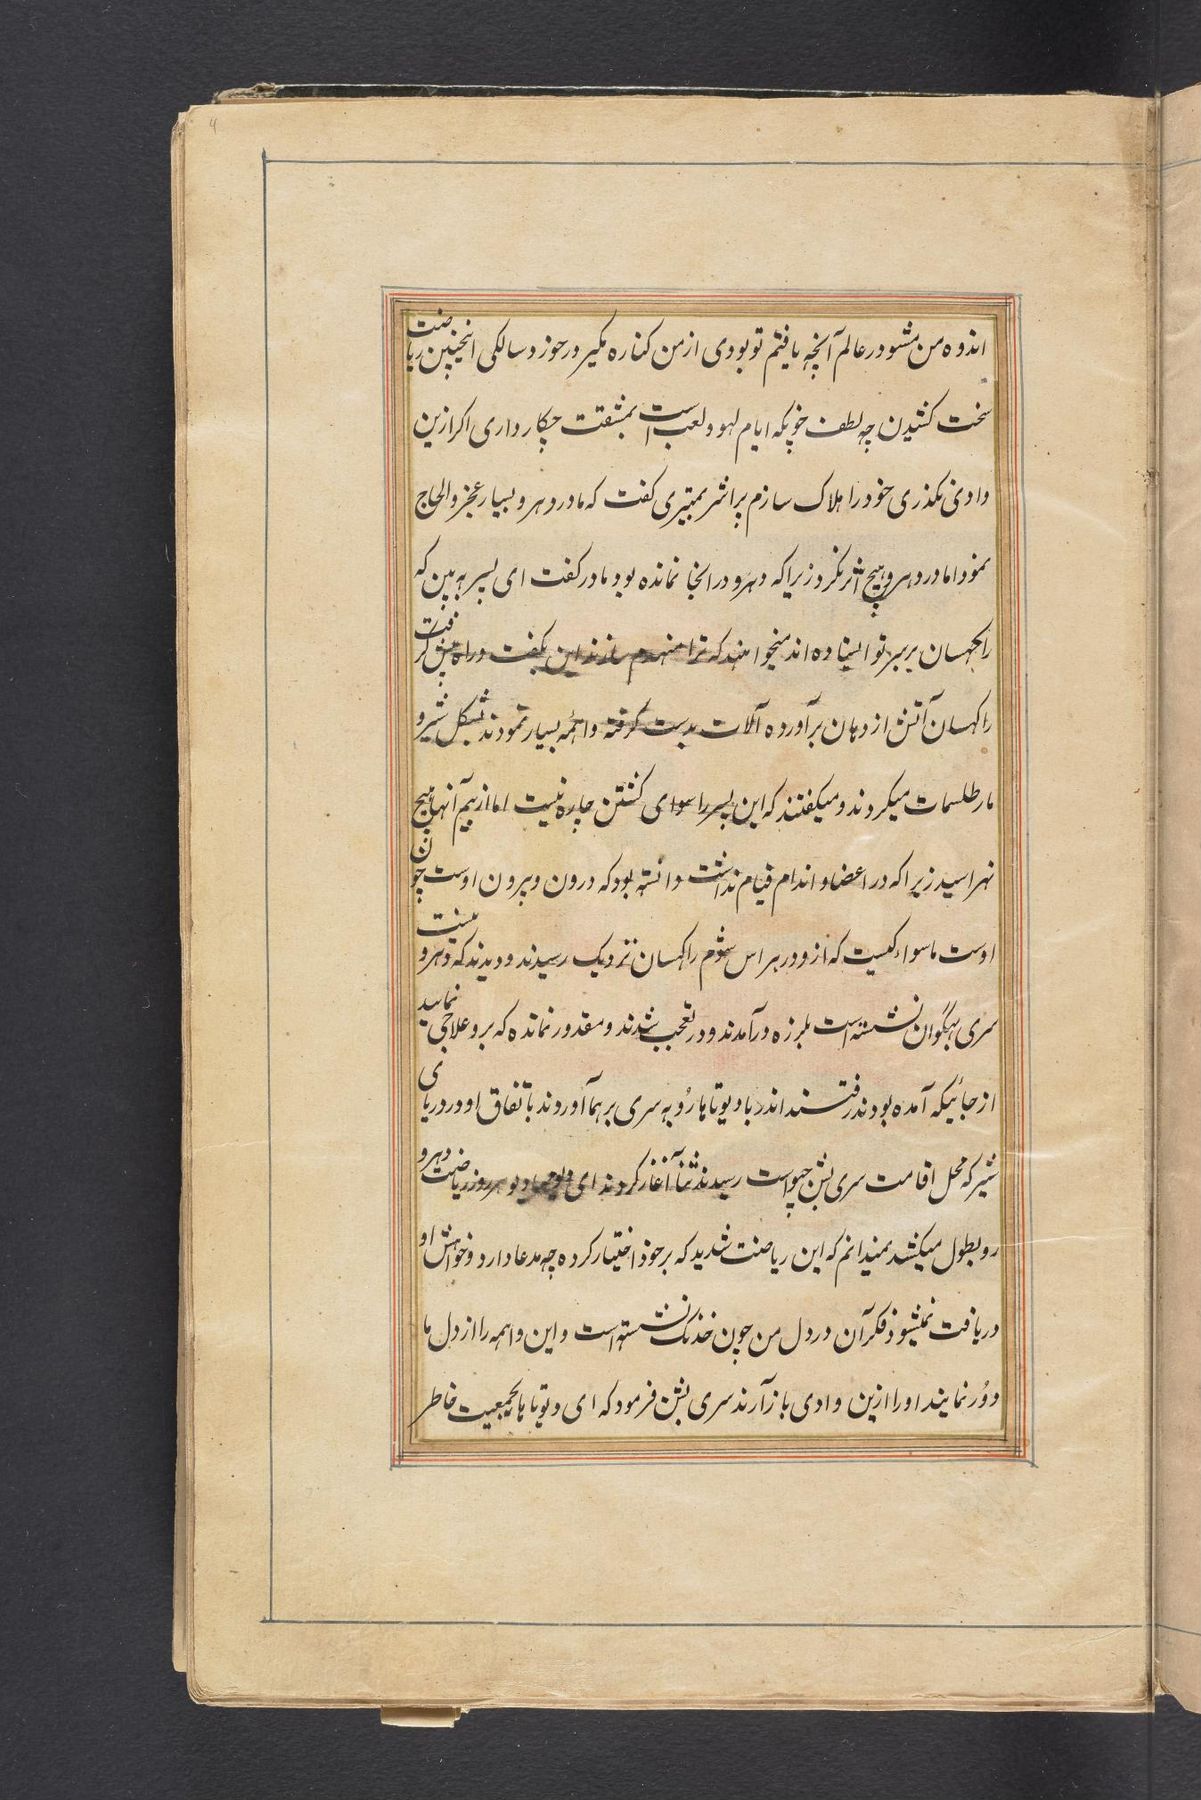 اندوه من مشو در عالم آنچه یافتم تو بودی از من کناره مگیر در خورد سالکی اینچنین ریاضت
سخت کشیدن چه لطف خوبکه ایام لهو و لعب است بمشقت چکار داری اگر ازین
وادی نگذری خود را هلاک سازم پراشر بمیتری گفت که مادر دهرو بسیار عجز و الحاح
نمود اما در دهرو هیچ اثر نکرد زیرا که دهرو در انجا نمانده بود مادر گفت ای پسر به بین که
راکهسان بر سر تو ایستاده اند میخواهند که ترا منهدم سازند این بگفت و راه پیش گرفت
راکهسان آتش از دهان برآورده آلات بدست گرفته واهمه بسیار نمودند بشکل شیر و
مار طلسمات میکردند و میگفتند که این پسر را سوای کشتن چاره نیست اما از بیم آنها هیچ
نهراسید زیرا که در اعضا و اندام قیام نداشت دانسته بود که درون و بیرون اوست چون
اوست ماسواء کیست که ازو در هراس شوم راکهسان نزدیک رسیدند و دیدند که دهرو بسیت
سری بهگوان نشسته است بلرزه درآمدند و در تعجب شدند و مقدور نمانده که برو علاجی نمایند
از جائیکه آمده بودند رفتند اندر با دیوتاها رو به سری برهما آوردند باتفاق او در دریای
شیر که محل اقامت سری بشن جیو است رسیدند ثنا آغاز کردند ای هر روز ریاضت دهرو
رو بطول میکشد نمیدانم که این ریاضت شدید که بر خود اختیار کرده چه مدعا دارد و خواهش او
دریافت نمیشود فکر آن در دل من چون خدنگ نشسته است و این واهمه را از دل ما
دور نمایند او را ازین وادی باز آرند سری بشن فرمود که ای دیوتاها بجمعیت خاطر